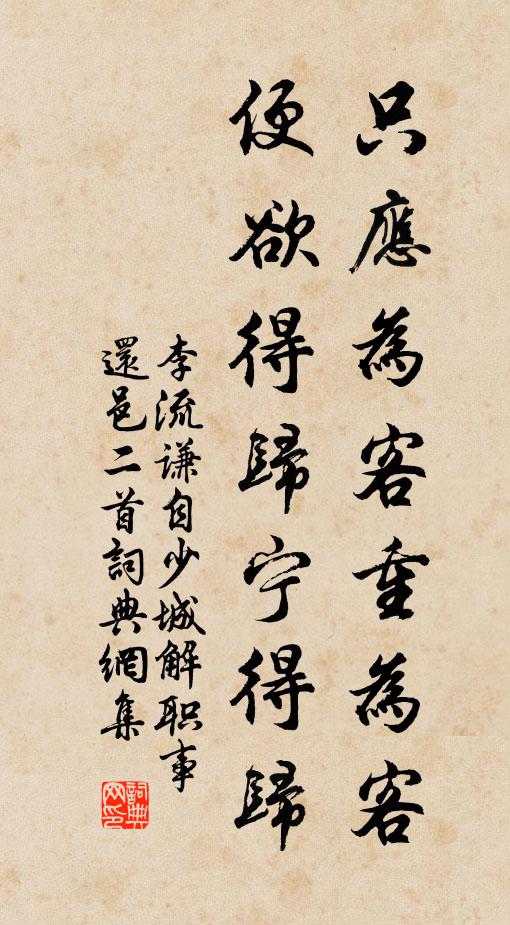 只應為客重為客
便欲得歸宁得歸
李流谦自少城解职事
還邑二首詞典網集
詞典网印